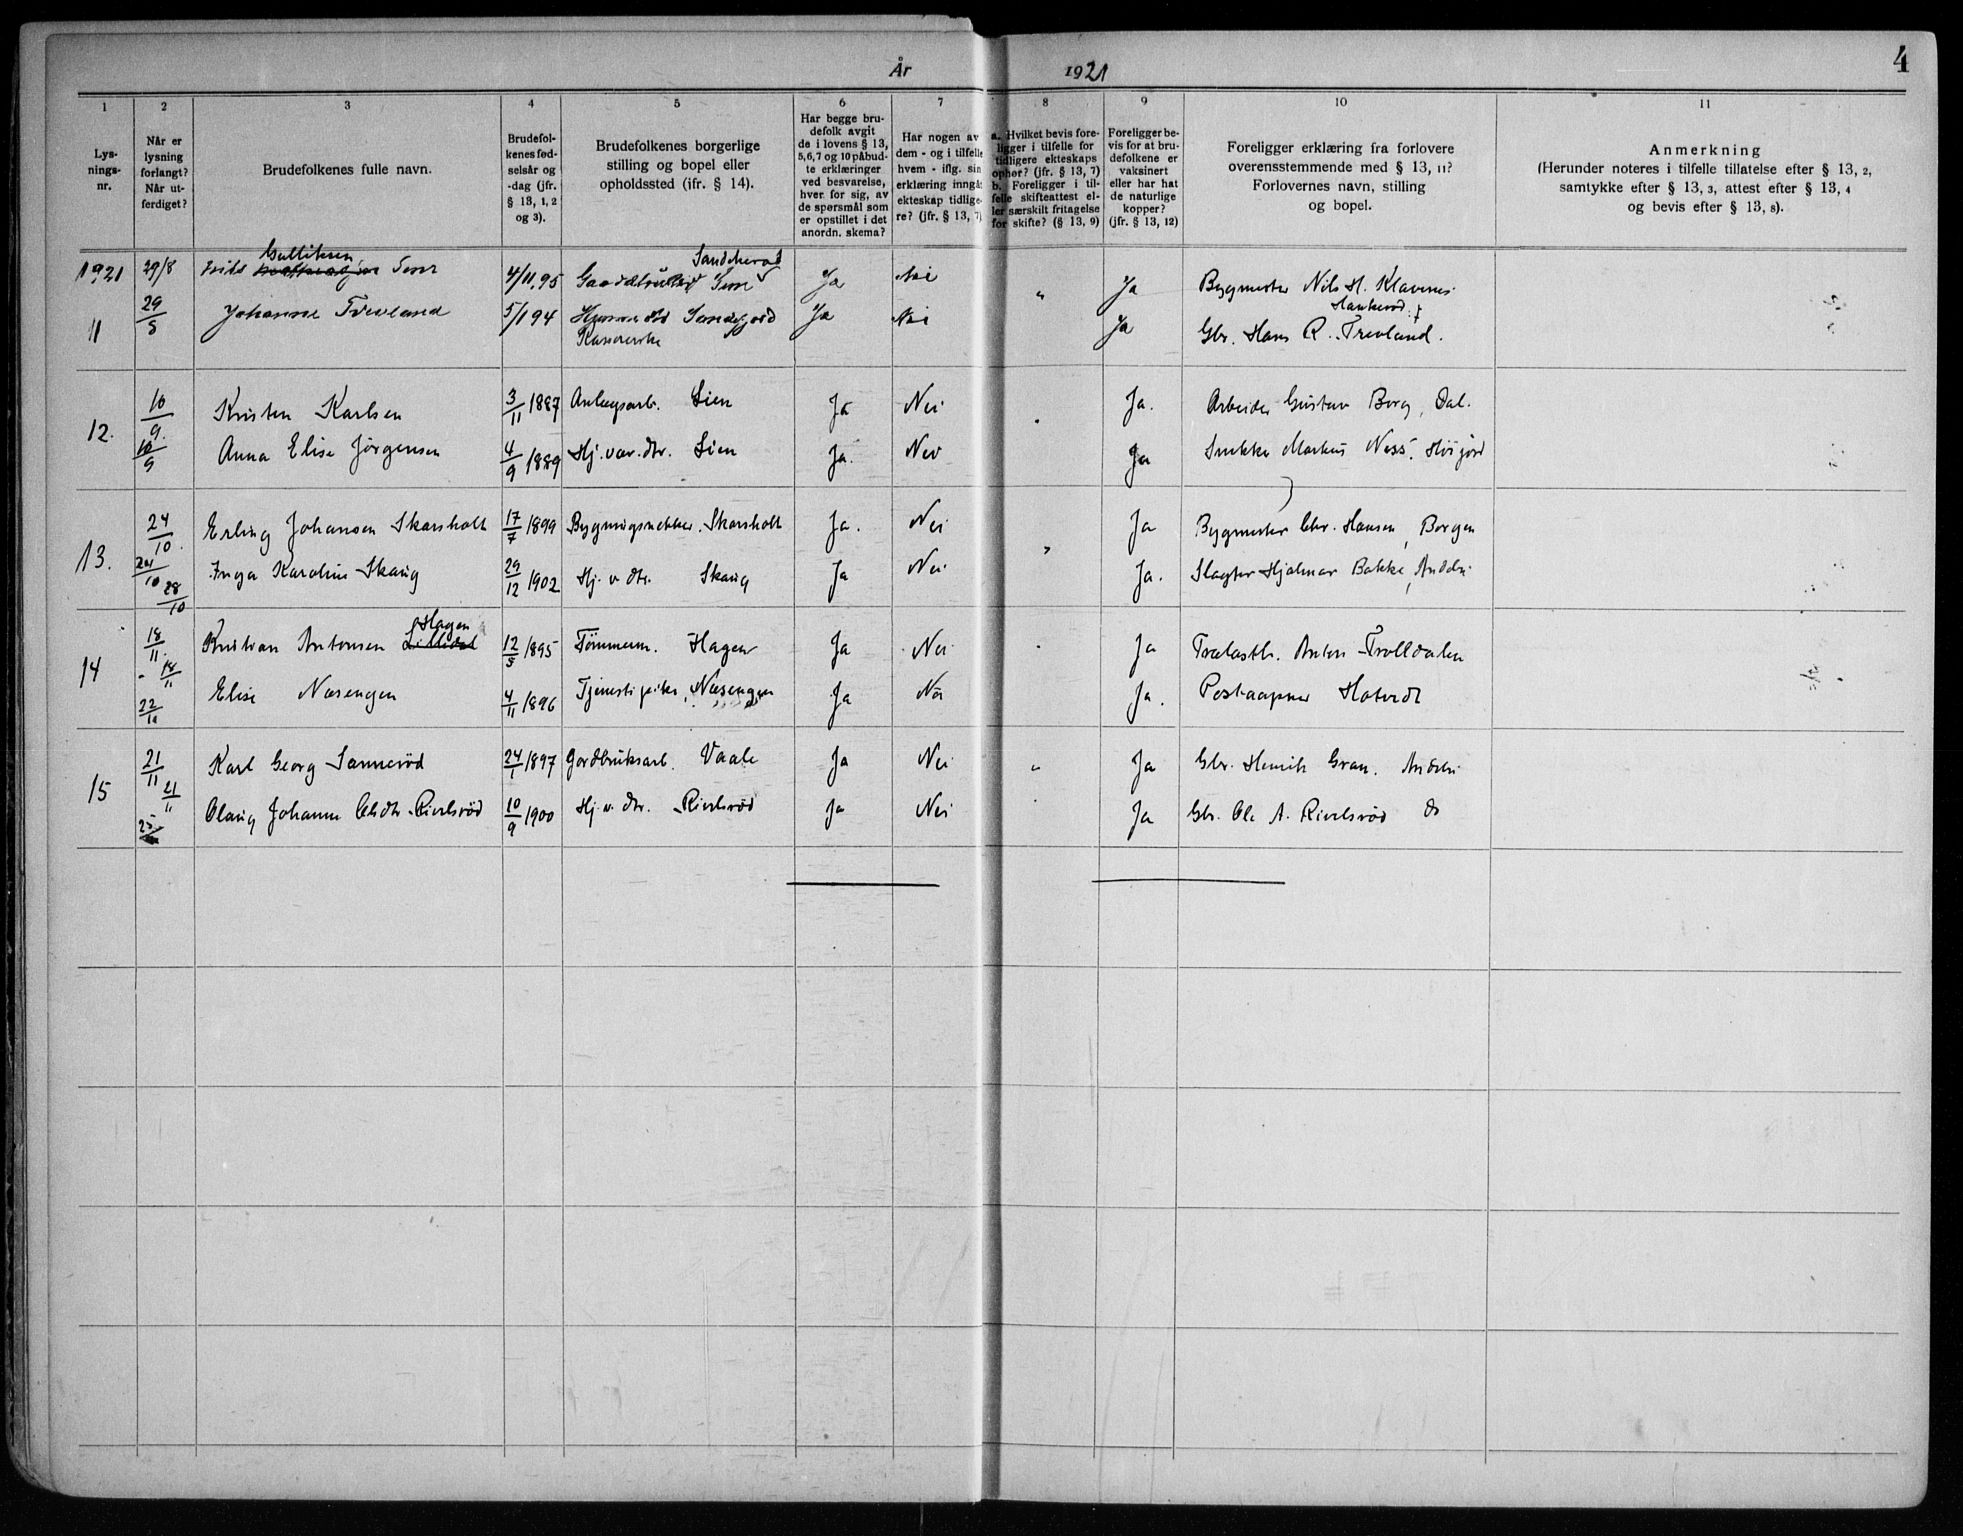 4
År 1921
1 2 3 4 5 6 7 8 9 10 11
Lys-
nings-
nr.
Når er
lysning
forlangt?
Når ut-
ferdiget?
Brudefolkenes fulle navn.
Brudefol-
kenes fød-
selsår og
-dag (jfr.
§ 13, 1, 2
og 3).
Brudefolkenes borgerlige
stilling og bopel eller
opholdssted (ifr. § 14).
Har begge bru-
defolk avgit
de i lovens § 13,
5, 6, 7 og 10 påbud-
te erklæringer
ved besvarelse,
hver for sig, av
de spørsmål som
er opstillet i det
anordn. skema?
Har nogen av
dem - og i tilfelle
hvem - iflg. sin
erklæring inngåt
ekteskap tidlige-
re? (jfr. § 13, 7)
a. Hvilket bevis fore-
ligger i tilfelle for
tidligere ekteskaps
ophør? (jfr. § 13, 7)
b. Foreligger i til-
felle skifteattest el-
ler særskilt fritagelse
for skifte? (§ 13, 9)
Foreligger be-
vis for at bru-
defolkene er
vaksinert
eller har hat
de naturlige
kopper?
(jfr. § 13, 12)
Foreligger erklæring fra forlovere
overensstemmende med § 13, 11?
Forlovernes navn, stilling
og bopel.
Anmerkning
(Herunder noteres i tilfelle tillatelse efter § 13, 2,
samtykke efter § 13, 3, attest efter § 13, 4
og bevis efter § 13, 8).
Gullihsen Sandeherad
1921 29/8 Nils 4/11.95 Ja Nei " Ja Bygmester Nils H. Klavenes
Haukerød
11 29/8 Johanne Trevland 5/1 94 Sandefjord Ja Nei Ja Gbr. Hans R. Trevland.
Kassererske
10/9 Kristen Karlsen 3/11 1887 Anlegsarb. Lien Ja Nei " Ja. Arbeider Gustav Borg, Dal.
12. 10/9 Anna Elise Jørgensen 4/9 1889 Hj.vær.dtr. Lien Ja. Nei Ja Snekker Markus Ness, Høijord
24/10 Erling Johansen Skarsholt 17/7 1899 Bygningsnekker. Skarsholt Ja. Nei " Ja Bygmester Chr. Hansen, Borgen
13. 24/10 28/10 Inga Karoline Skaug 29/12 1902 Hj. v. dtr. Skaug Ja Nei Ja. Slagter Hjalmar Bakke, Andebu
Hagen
18/11. Kristian Antonsen Lillidal 12/5 1895 Tømmerm. Hagen Ja Nei " Ja Trælasth. Anton Trolldalen
14 18/11 22/11 Elise Næsengen 4/11 1896 Tjenestepike, Næsengen Ja Nei Ja. Postaapner Hotvedt
21/11 Karl Georg Sannerød 24/1 1897 Jordbruksarb. Vaale Ja Nei " Ja Gbr. Henrik Gran. Andebu
15 21/11 25/11 Olaug Johanne Olsdtr. Rivelsrød 10/9 1900 Hj. v. dtr. Rivelsrød Ja Nei Ja Gbr. Ole A. Rivelsrød do